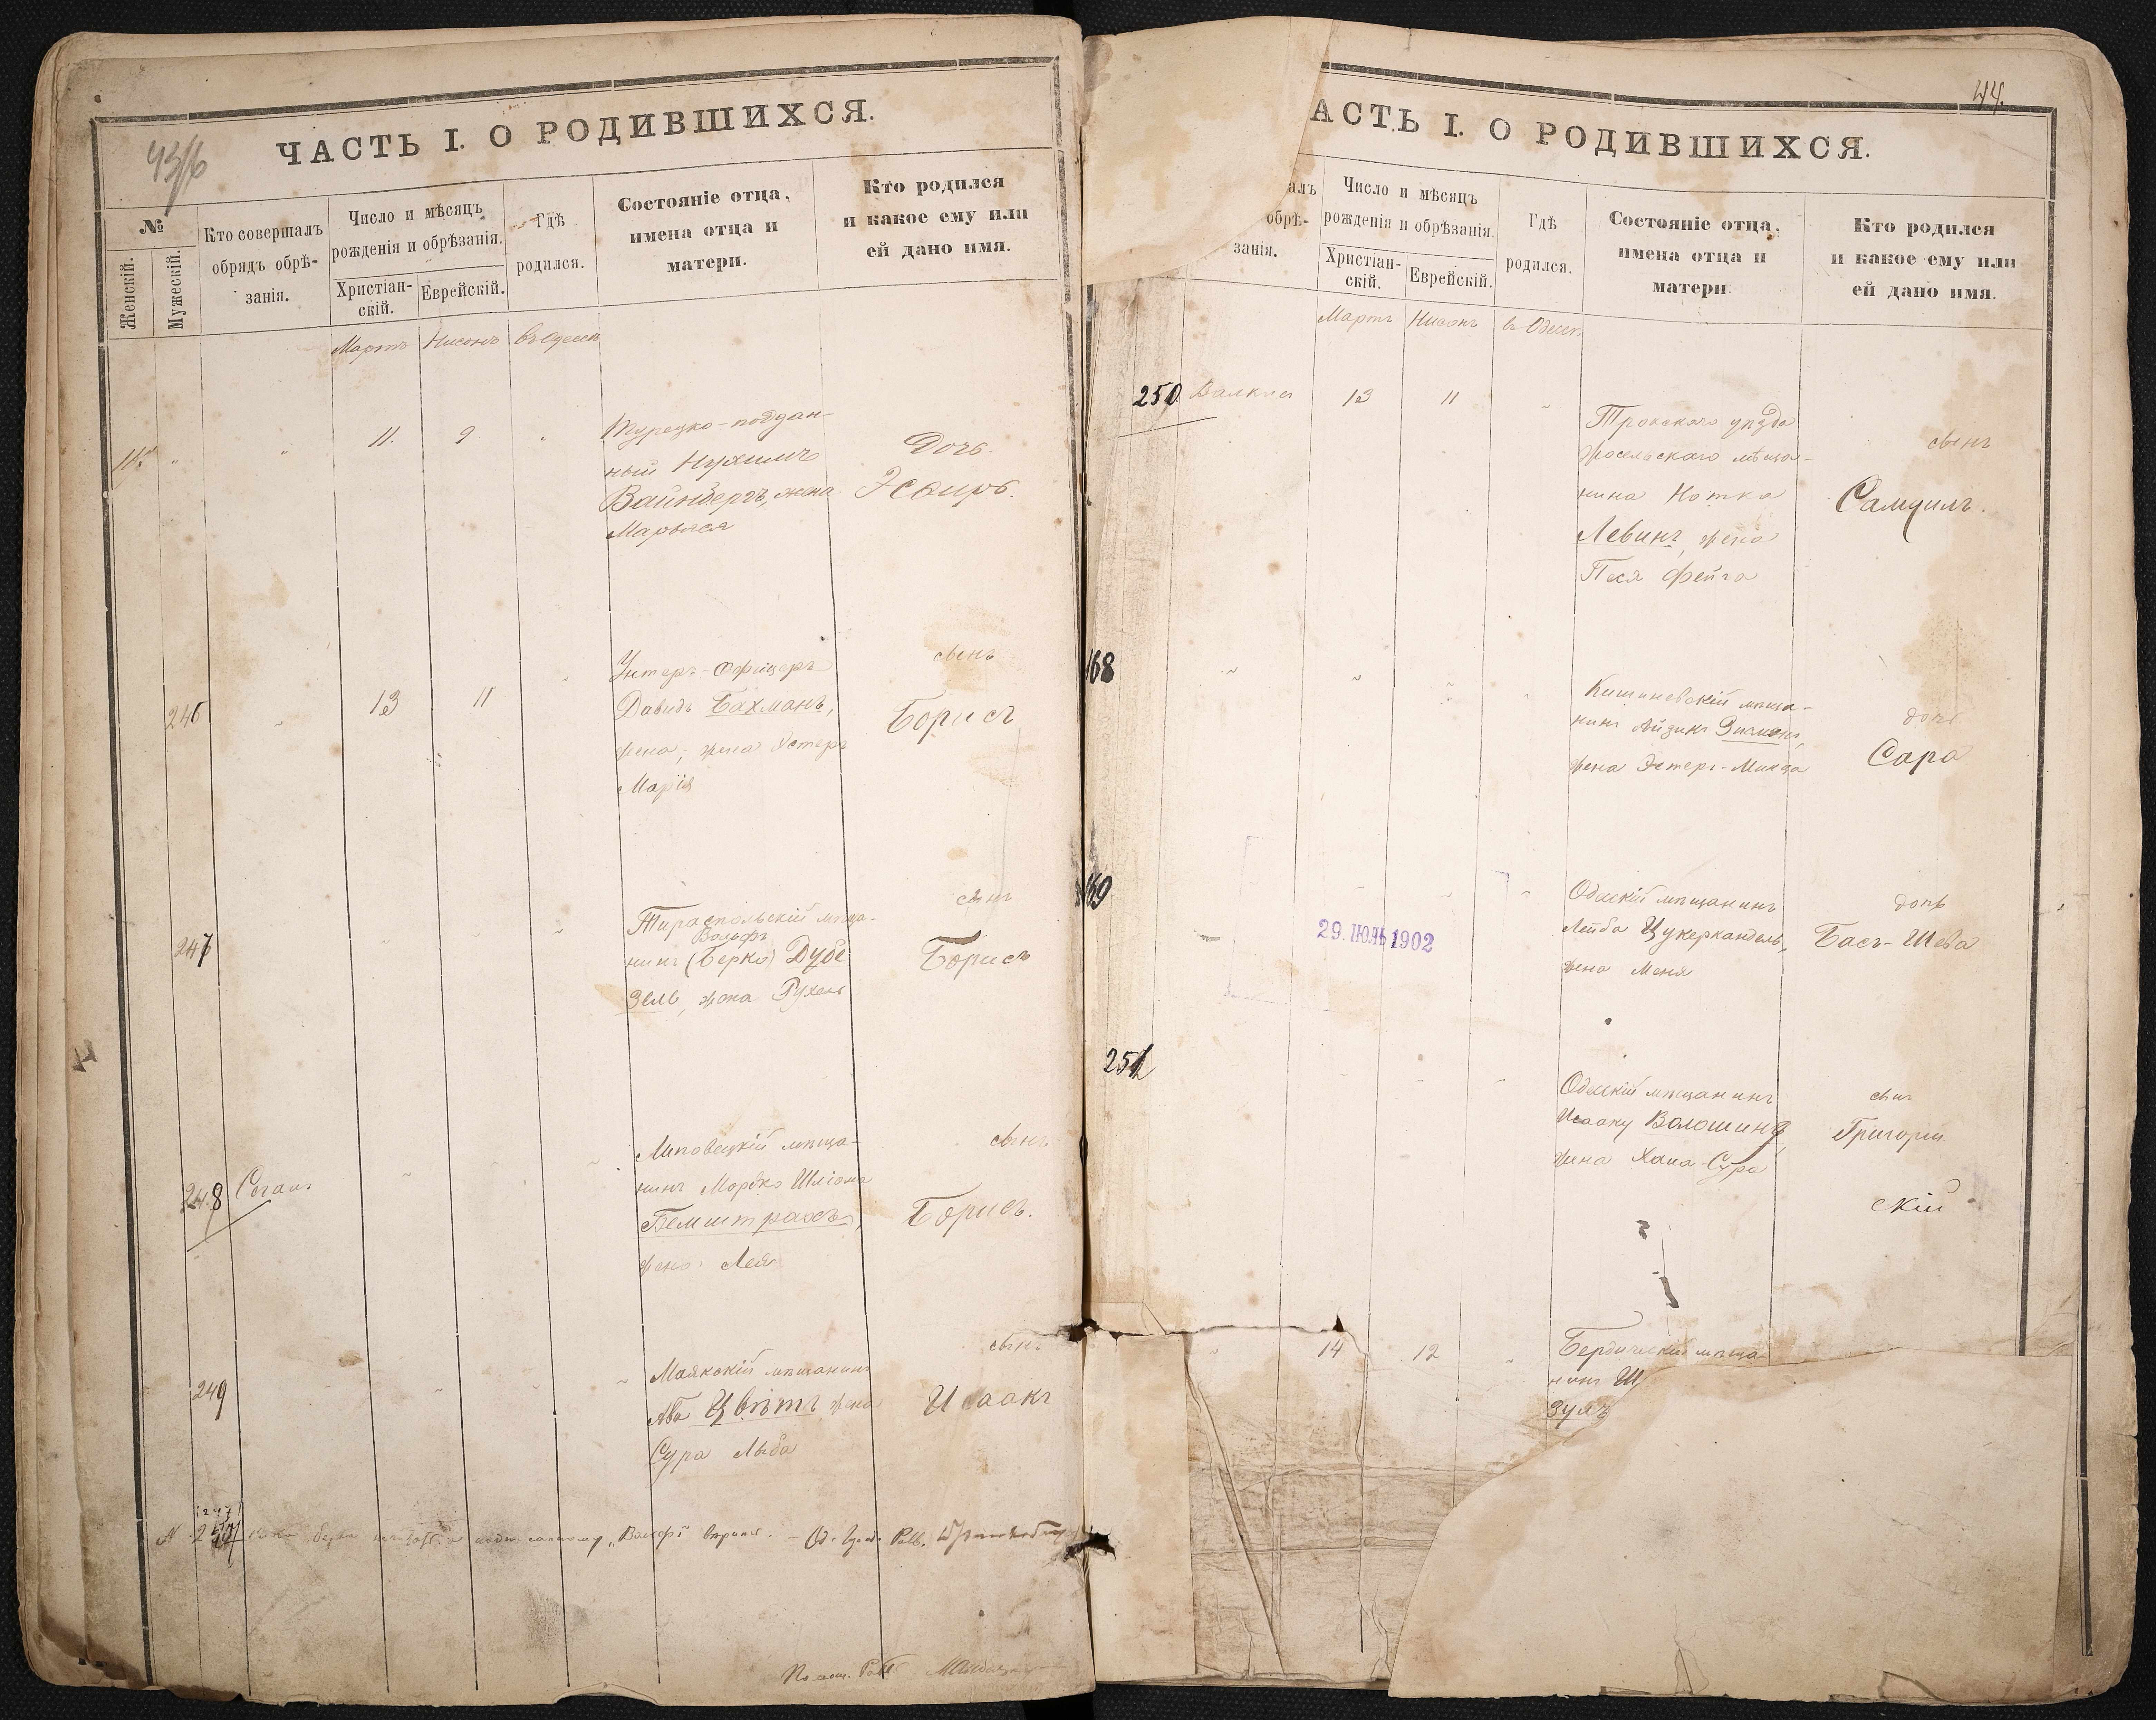 43/6
ЧАСТЬ I. О РОДИВШИХСЯ.
№
Женскій.
Мужескій.
Кто совершалъ
обрядъ обрѣ-
занія.
Число и мѣсяцъ
рожденія и обрѣзанія.
Христіан-
скій.
Еврейскій.
Гдѣ
родился.
Состояніе отца,
имена отца и
матери.
Кто родился
и какое ему или
ей дано имя.
Мартъ Нисонъ въ Одессѣ
11. 9
Турецко-поддан-
ный Нухимъ
Вайнбергъ, жена
Дочь.
Эсѳирь.
246 13 11
Унтеръ-Офицеръ
Давидъ Бахманъ,
жена, жена Эстеръ
Марія
сынъ
Борисъ
247
Тираспольскій мѣща-
Вольфъ
нинъ (Берко) Дубе
зель, жена Рухель
сынъ
Борисъ
248 Соганъ
Липовецкій мѣща-
нинъ Мордко Шліома
Бемштрахъ,
жена Лея
сынъ
Борисъ.
249
Маякскій мѣщанинъ
Аба Цвѣтъ жена
Сура Люба
сынъ
Исаакъ
44.
АСТЬ I. О РОДИВШИХСЯ.
алъ
обрѣ-
занія.
Число и мѣсяцъ
рожденія и обрѣзанія.
Христіан-
скій.
Еврейскій.
Гдѣ
родился.
Состояніе отца,
имена отца и
матери.
Кто родился
и какое ему или
ей дано имя.
Мартъ Нисонъ въ Одессѣ
250 13 11
Трокскаго уѣзда
мѣща-
нина Нотка
Левинъ, жена
Песя Фейга
сынъ
Самуилъ.
168
Кишиневскій мѣща-
нинъ Айзикъ
жена Эстеръ-
дочь
Сара
169
29. ІЮЛЬ 1902
Одесскій мѣщанинъ
Лейба Цукеркандель,
жена Меня
дочь
Басъ-Шева
251
Одесскій мѣщанинъ
Волошинъ,
жена Хана-Сура
сынъ
Григорій
скій
14 12
Бердичевскій мѣща-
нинъ Ш
Зуль